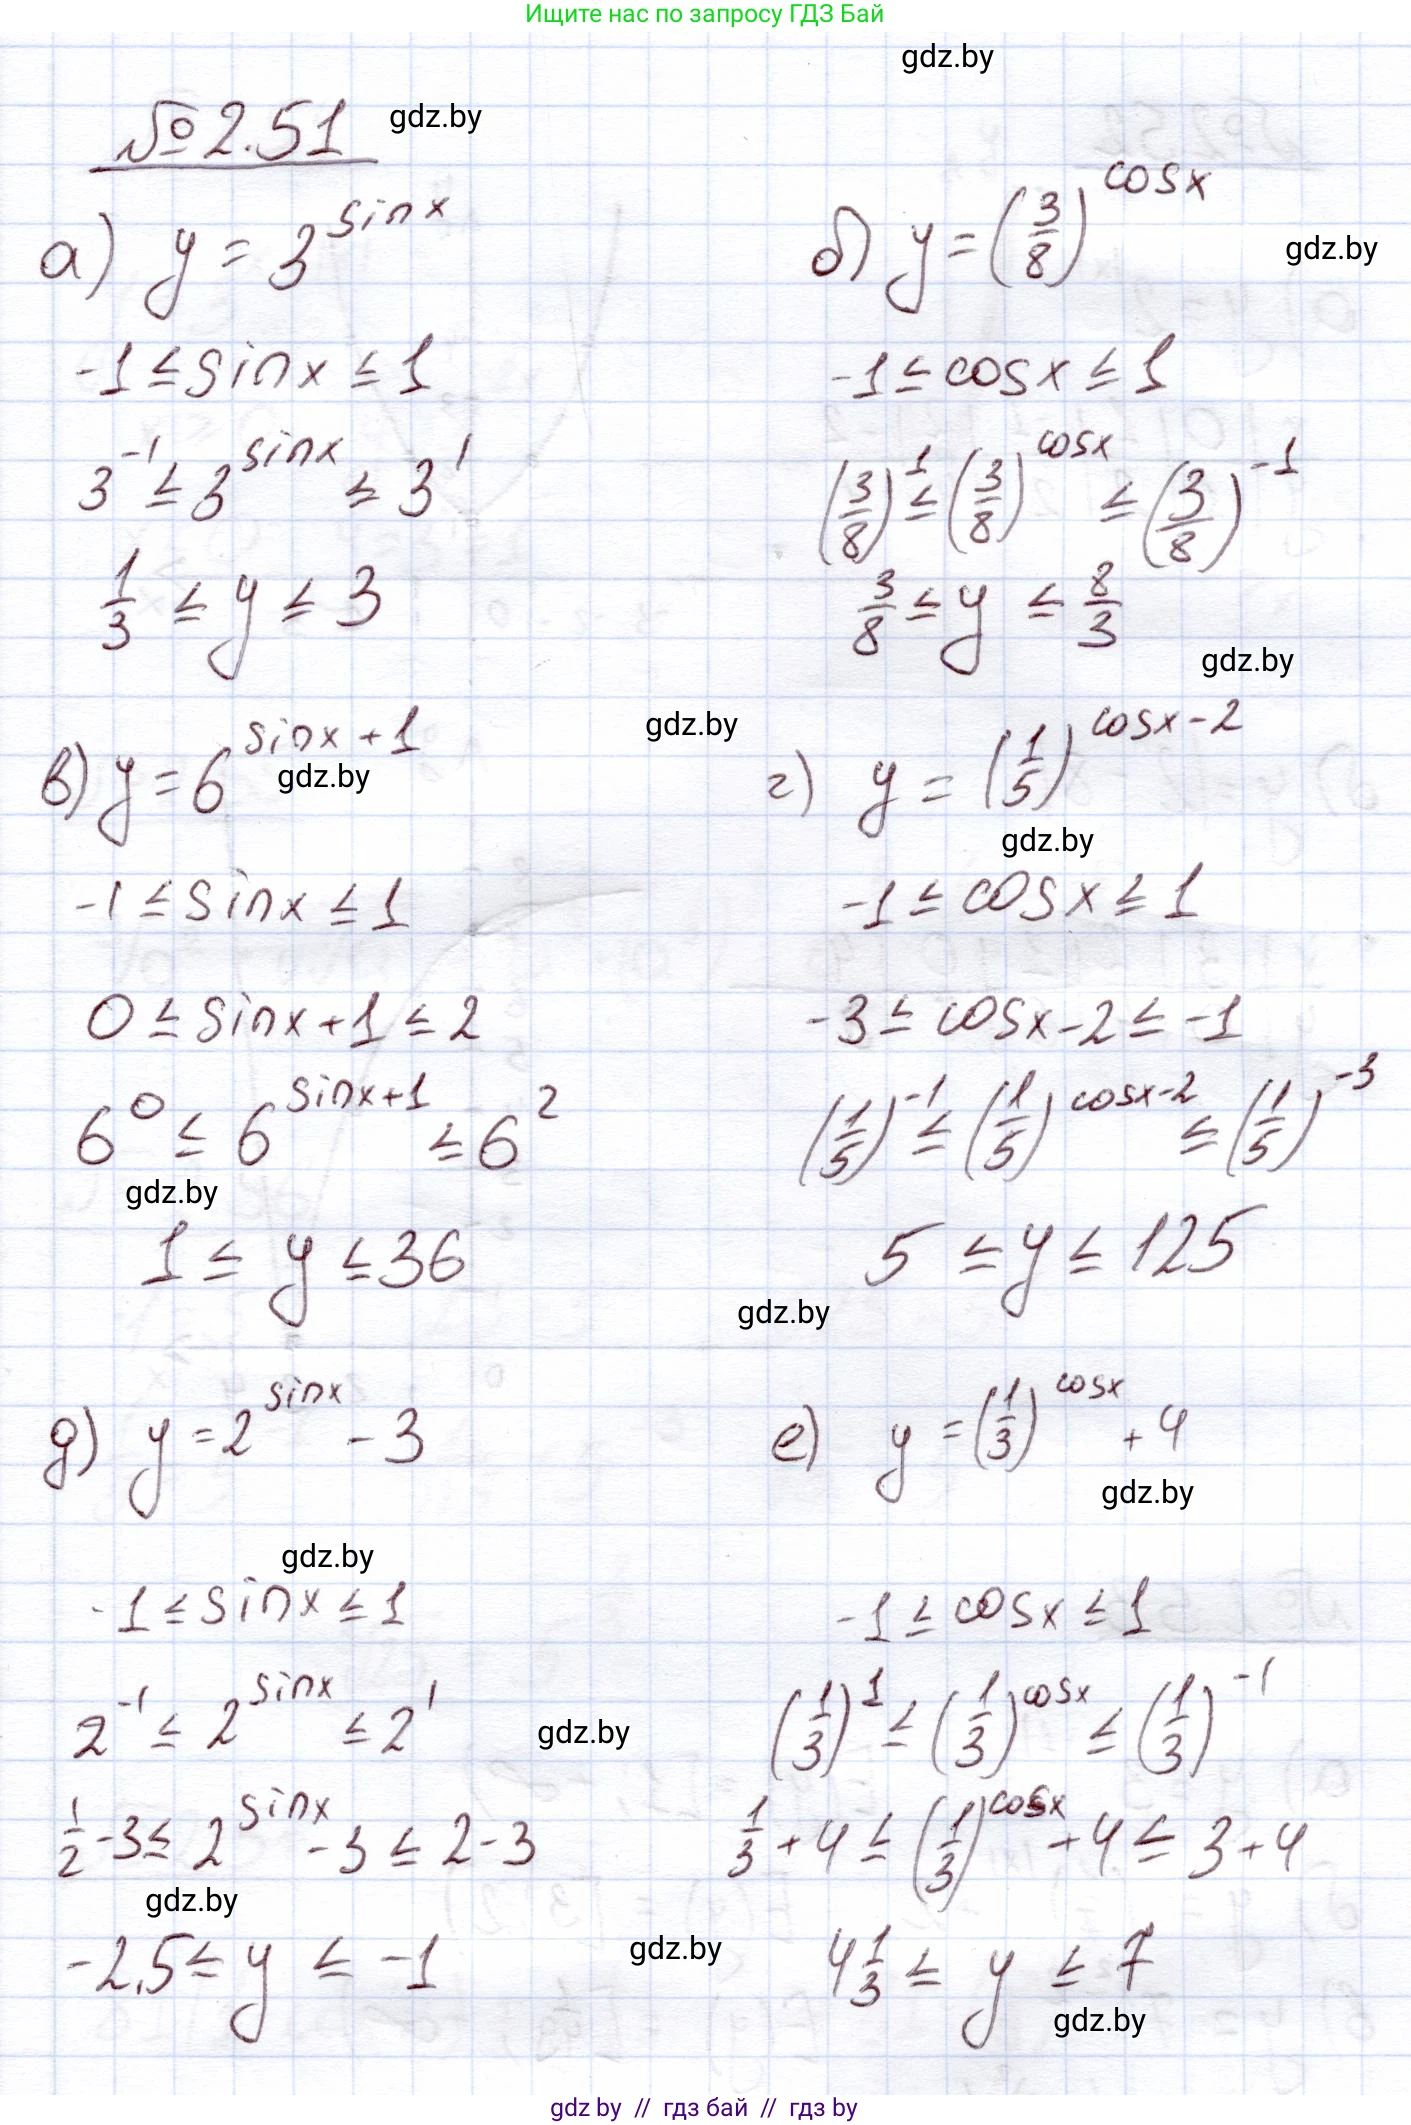 Ищите нас по запросу ГДЗ Бай
gdz.by
№2.51 gdz.by
а) y = 3^{sinx}
-1 ≤ sinx ≤ 1
3^{-1} ≤ 3^{sinx} ≤ 3^{1}
1/3 ≤ y ≤ 3
б) y = (3/8)^{cosx}
gdz.by
-1 ≤ cosx ≤ 1
(3/8)^{1} ≤ (3/8)^{cosx} ≤ (3/8)^{-1}
3/8 ≤ y ≤ 8/3
gdz.by
gdz.by
в) y = 6^{sinx+1}
gdz.by
-1 ≤ sinx ≤ 1
0 ≤ sinx+1 ≤ 2
6^{0} ≤ 6^{sinx+1} ≤ 6^{2}
gdz.by
1 ≤ y ≤ 36
г) y = (1/5)^{cosx-2}
gdz.by
-1 ≤ cosx ≤ 1
-3 ≤ cosx-2 ≤ -1
(1/5)^{-1} ≤ (1/5)^{cosx-2} ≤ (1/5)^{-3}
5 ≤ y ≤ 125
gdz.by
д) y = 2^{sinx} - 3
gdz.by
-1 ≤ sinx ≤ 1
2^{-1} ≤ 2^{sinx} ≤ 2^{1}
gdz.by
1/2 -3 ≤ 2^{sinx} -3 ≤ 2-3
gdz.by
-2,5 ≤ y ≤ -1
е) y = (1/3)^{cosx} + 4
gdz.by
-1 ≤ cosx ≤ 1
(1/3)^{1} ≤ (1/3)^{cosx} ≤ (1/3)^{-1}
1/3 + 4 ≤ (1/3)^{cosx} + 4 ≤ 3+4
gdz.by
4 1/3 ≤ y ≤ 7
gdz.by
gdz by // гдз бай // гдз by